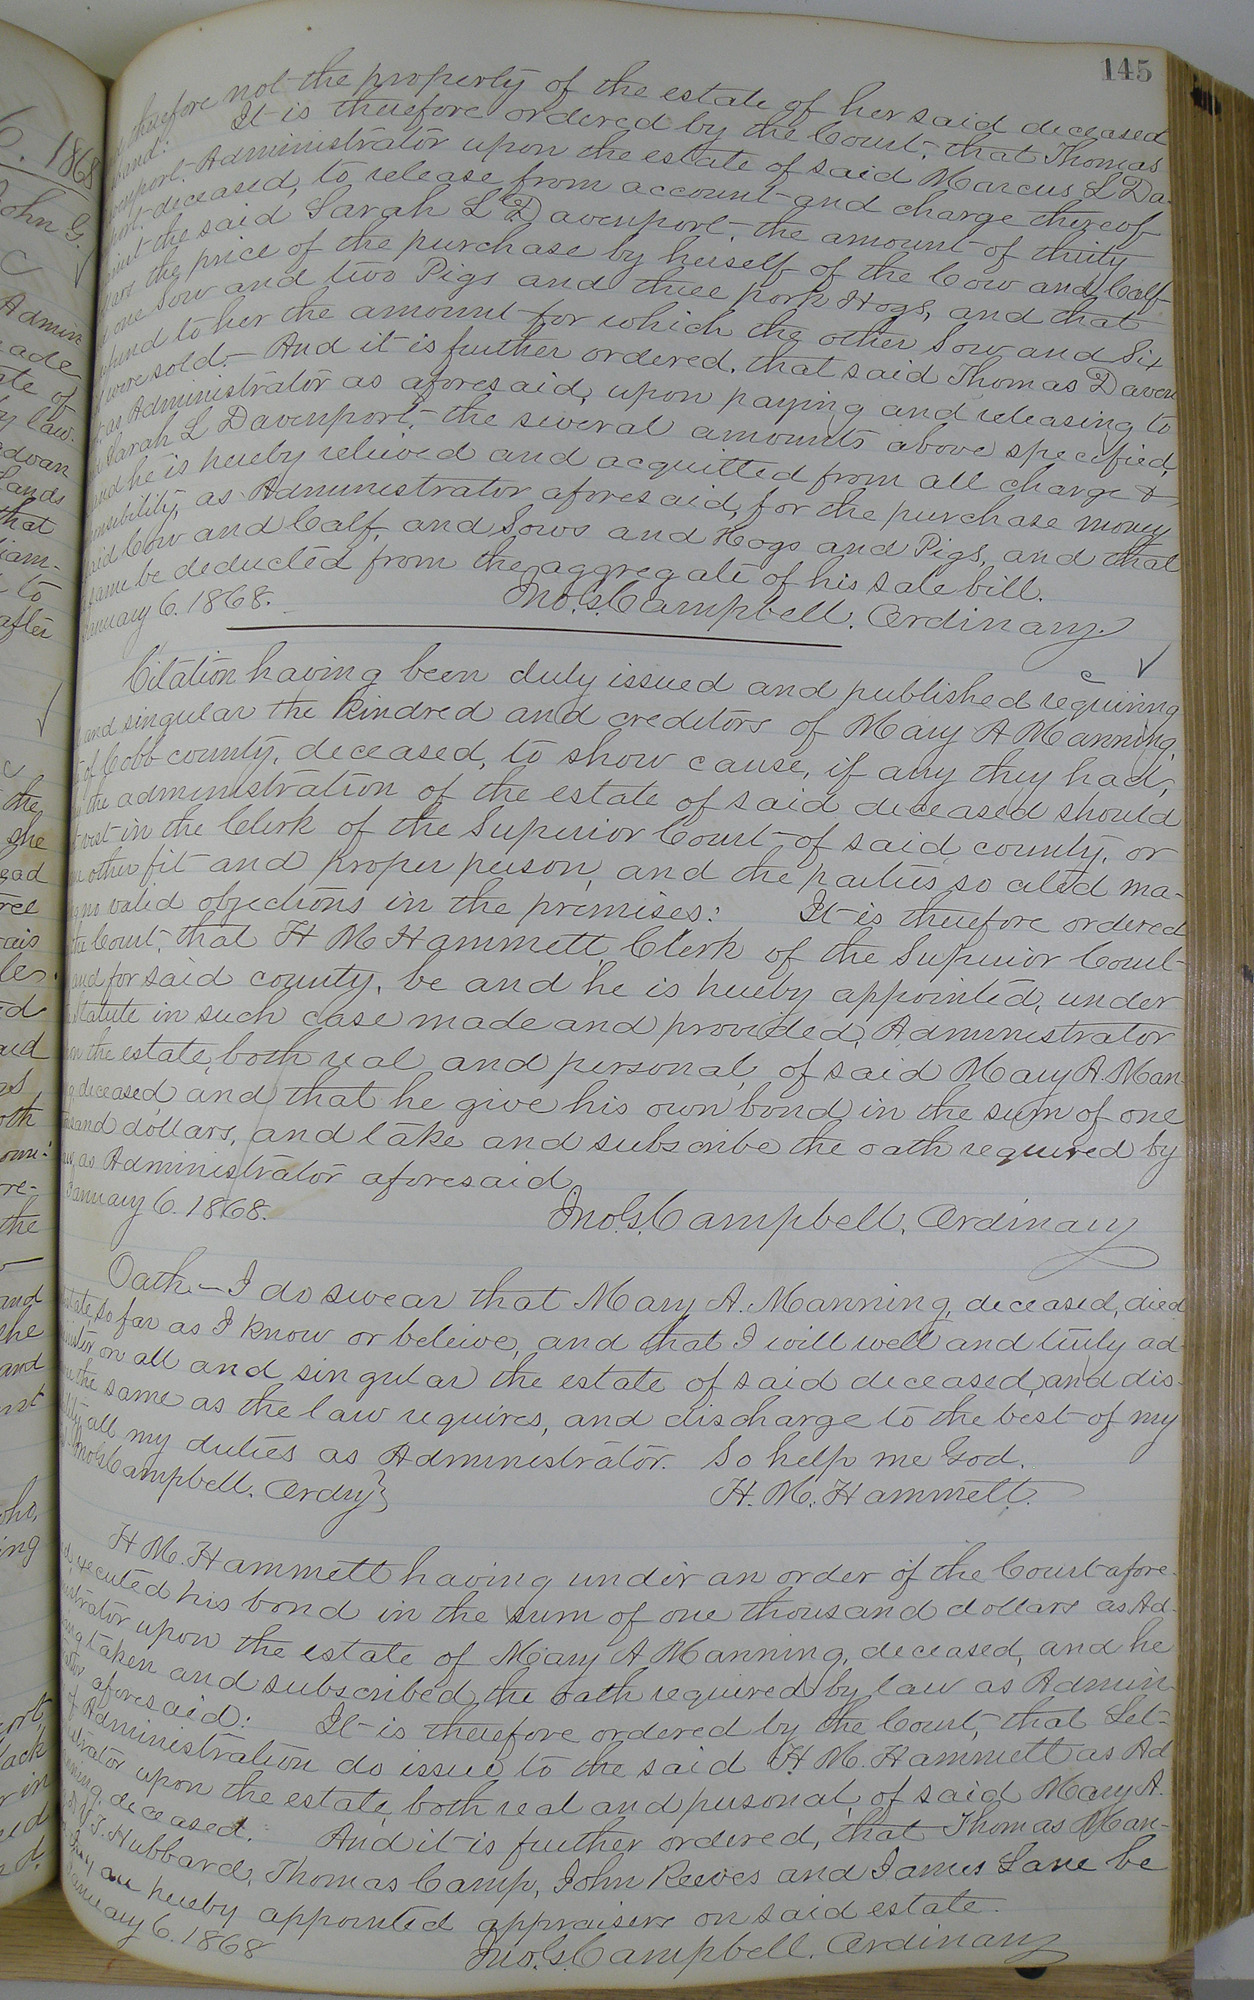 145
therefore not the property of the estate of her said deceased
It is therefore ordered by the Court, that Thomas
Administrator upon the estate of said Marcus L Da-
deceased, to release from account and charge thereof
the said Sarah L Davenport, the amount of thirty
the price of the purchase by herself of the Cow and Calf
one Sow and two Pigs and three pork Hogs, and that
to her the amount for which the other Sow and Six
were sold.— And it is further ordered, that said Thomas Daven
as Administrator as aforesaid, upon paying and releasing to
Sarah L Davenport, the several amounts above specified,
and he is hereby relieved and acquitted from all charge &
as Administrator aforesaid, for the purchase money
said Cow and Calf, and Sows and Hogs and Pigs, and that
same be deducted from the aggregate of his sale bill.
January 6. 1868. Jno. G. Campbell. Ordinary.
Citation having been duly issued and published requiring
and singular the kindred and creditors of Mary A Manning
of Cobb county, deceased, to show cause, if any they had,
the administration of the estate of said deceased should
vest in the Clerk of the Superior Court of said county, or
other fit and proper person, and the parties so cited ma-
no valid objections in the premises: It is therefore ordered
the Court, that H M Hammett, Clerk of the Superior Court
and for said county, be and he is hereby appointed, under
Statute in such case made and provided, Administrator
the estate, both real and personal, of said Mary A. Man-
deceased, and that he give his own bond in the sum of one
dollars, and take and subscribe the oath required by
as Administrator aforesaid.
January 6. 1868. Jno. G. Campbell, Ordinary
Oath.— I do swear that Mary A. Manning, deceased, died
so far as I know or beleive, and that I will well and truly ad-
on all and singular the estate of said deceased, and dis-
the same as the law requires, and discharge to the best of my
all my duties as Administrator. So help me God.
Jno. G. Campbell. Ordry} H. M. Hammett.
H M. Hammett having under an order of the Court afore-
executed his bond in the sum of one thousand dollars as Ad-
upon the estate of Mary A Manning, deceased, and he
taken and subscribed the oath required by law as Admin-
aforesaid: It is therefore ordered by the Court, that Let-
of Administration do issue to the said H. M. Hammett as Ad
upon the estate, both real and personal, of said Mary A.
deceased. And it is further ordered, that Thomas Man-
Hubbard, Thomas Camp, John Reeves and James Lane be
they are hereby appointed appraisers on said estate.
January 6. 1868 Jno. G. Campbell. Ordinary